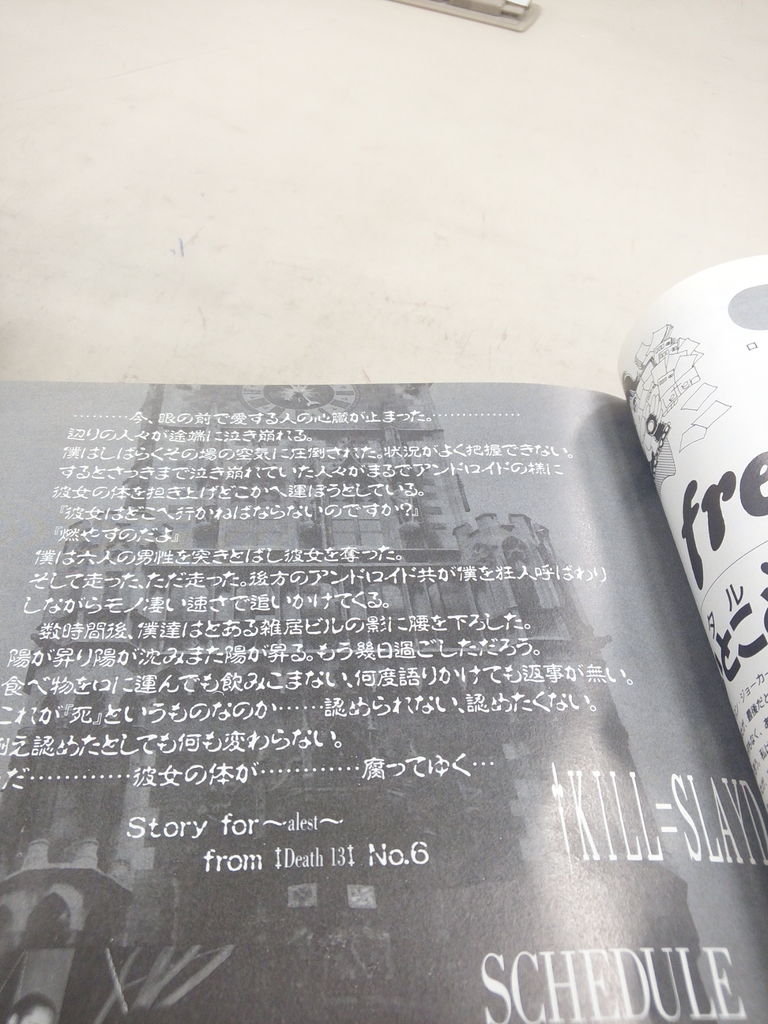 ………今、眼の前で愛する人の心臓が止まった。……………
辺りの人々が途端に泣き崩れる。
僕はしばらくその場の空気に圧倒された。状況がよく把握できない。
するとさっきまで泣き崩れていた人々がまるでアンドロイドの様に
彼女の体を担き上げどこかへ運ぼうとしている。
『彼女はどこへ行かねばならないのですか?』
『燃やすのだよ』
僕は六人の男性を突きとばし彼女を奪った。
そして走った、ただ走った。後方のアンドロイド共が僕を狂人呼ばわり
しながらモノ凄い速さで追いかけてくる。
数時間後、僕達はとある雑居ビルの影に腰を下ろした。
陽が昇り陽が沈みまた陽が昇る。もう幾日過ごしただろう。
食べ物を口に運んでも飲みこまない、何度語りかけても返事が無い。
これが『死』というものなのか……認められない、認めたくない。
例え認めたとしても何も変わらない。
だ…………彼女の体が…………腐ってゆく…
Story for～alest～
from ‡Death 13‡ No.6
†KILL=SLAYD
SCHEDULE
fre
タル
とこ
ロ
ジョーカー